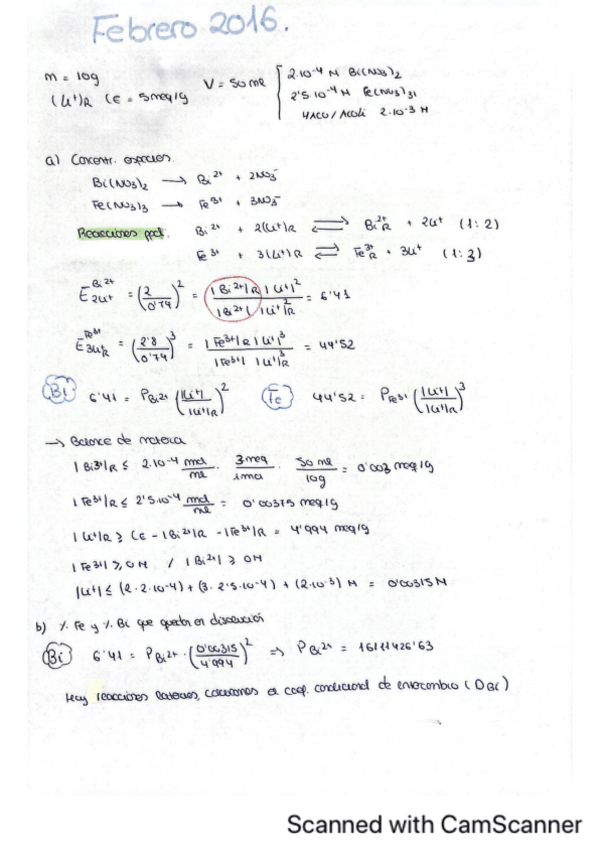 Febrero 2016.
m = 10g
(Li⁺)R CE = 5 meq/g
V = 50 ml { 2·10⁻⁴ M Bi(NO₃)₂
2'5·10⁻⁴ M Fe(NO₃)₃
HAcO/AcOLi 2·10⁻³ M
a) Concentr. especies.
Bi(NO₃)₂ → Bi²⁺ + 2NO₃⁻
Fe(NO₃)₃ → Fe³⁺ + 3NO₃⁻
Reacciones ppal. Bi²⁺ + 2(Li⁺)R ⇌ Bi²⁺R + 2Li⁺ (1:2)
Fe³⁺ + 3(Li⁺)R ⇌ Fe³⁺R + 3Li⁺ (1:3)
E Bi²⁺ 2Li⁺ = (2/0'74)² = |Bi²⁺|R |Li⁺|² / |Bi²⁺| |Li⁺|²R = 6'41
E Fe³⁺ 3LiR = (2'8/0'74)³ = |Fe³⁺|R |Li⁺|³ / |Fe³⁺| |Li⁺|³R = 44'52
Bi 6'41 = P Bi²⁺ (|Li⁺| / |Li⁺|R)² Fe 44'52 = P Fe³⁺ (|Li⁺| / |Li⁺|R)³
→ Balance de materia
|Bi³⁺|R ≤ 2·10⁻⁴ mol/ml · 3meq/1mol · 50 ml/10g = 0'003 meq/g
|Fe³⁺|R ≤ 2'5·10⁻⁴ mol/ml = 0'00375 meq/g
|Li⁺|R ≥ CE - |Bi²⁺|R - |Fe³⁺|R = 4'994 meq/g
|Fe³⁺| ≥ 0M / |Bi²⁺| ≥ 0M
|Li⁺| ≤ (2·2·10⁻⁴) + (3·2'5·10⁻⁴) + (2·10⁻³) M = 0'00315 M
b) % Fe y % Bi que queda en disolución
Bi 6'41 = P Bi²⁺ · (0'00315/4'994)² ⇒ P Bi²⁺ = 16111426'63
Hay reacciones laterales, calculamos el coef. condicional de intercambio (DBi)
Scanned with CamScanner